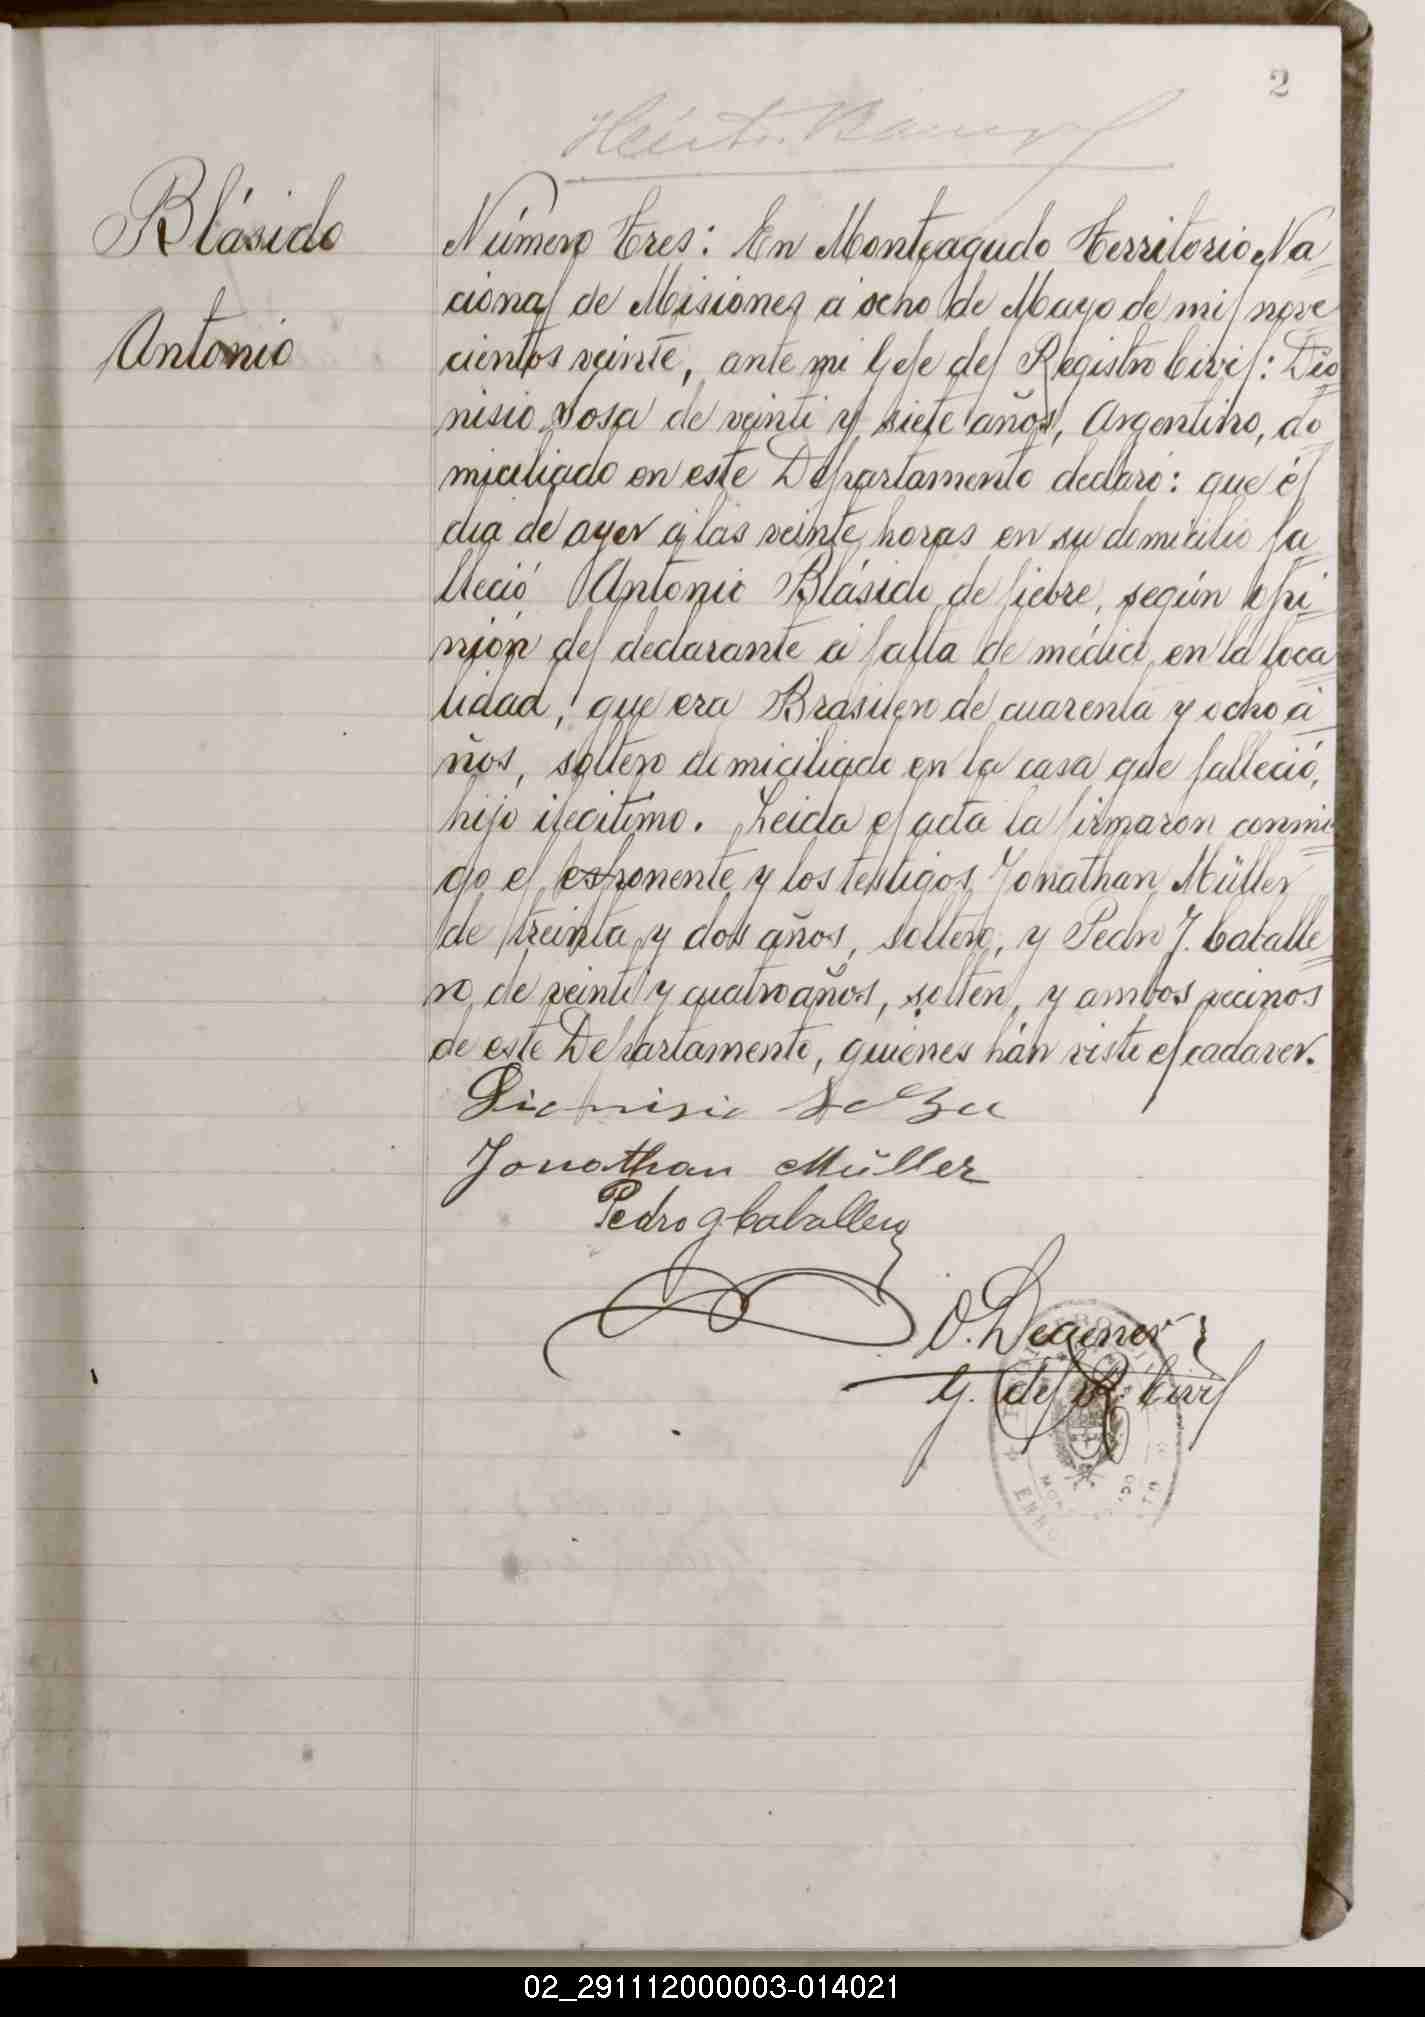 2
Blásido
Antonio
Número Tres: En Monteagudo Territorio Na
cional de Misiones á ocho de Mayo de mil nove
cientos veinte, ante mi Gefe del Registro Civil: Dio
nisio Sosa de veinti y siete años, Argentino, do
miciliado en este Departamento declaró: que él
dia de ayer á las veinte horas en su domicilio fa
lleció Antonio Blásido de fiebre, según opi
nión del declarante á falta de médico en la loca
lidad, que era Brasilero de cuarenta y ocho a
ños, soltero domiciliado en la casa que falleció,
hijo ilegitimo. Leida el acta la firmaron conmi
go el esponente y los testigos Jonathan Müller
de treinta y dos años, soltero, y Pedro J. Caballe
ro, de veinti y cuatro años, soltero, y ambos vecinos
de este Departamento, quienes hán visto el cadaver.
Dionisio
Jonathan Müller
Pedro J Caballero
O. Degener
G. del R. Civil
02_291112000003-014021